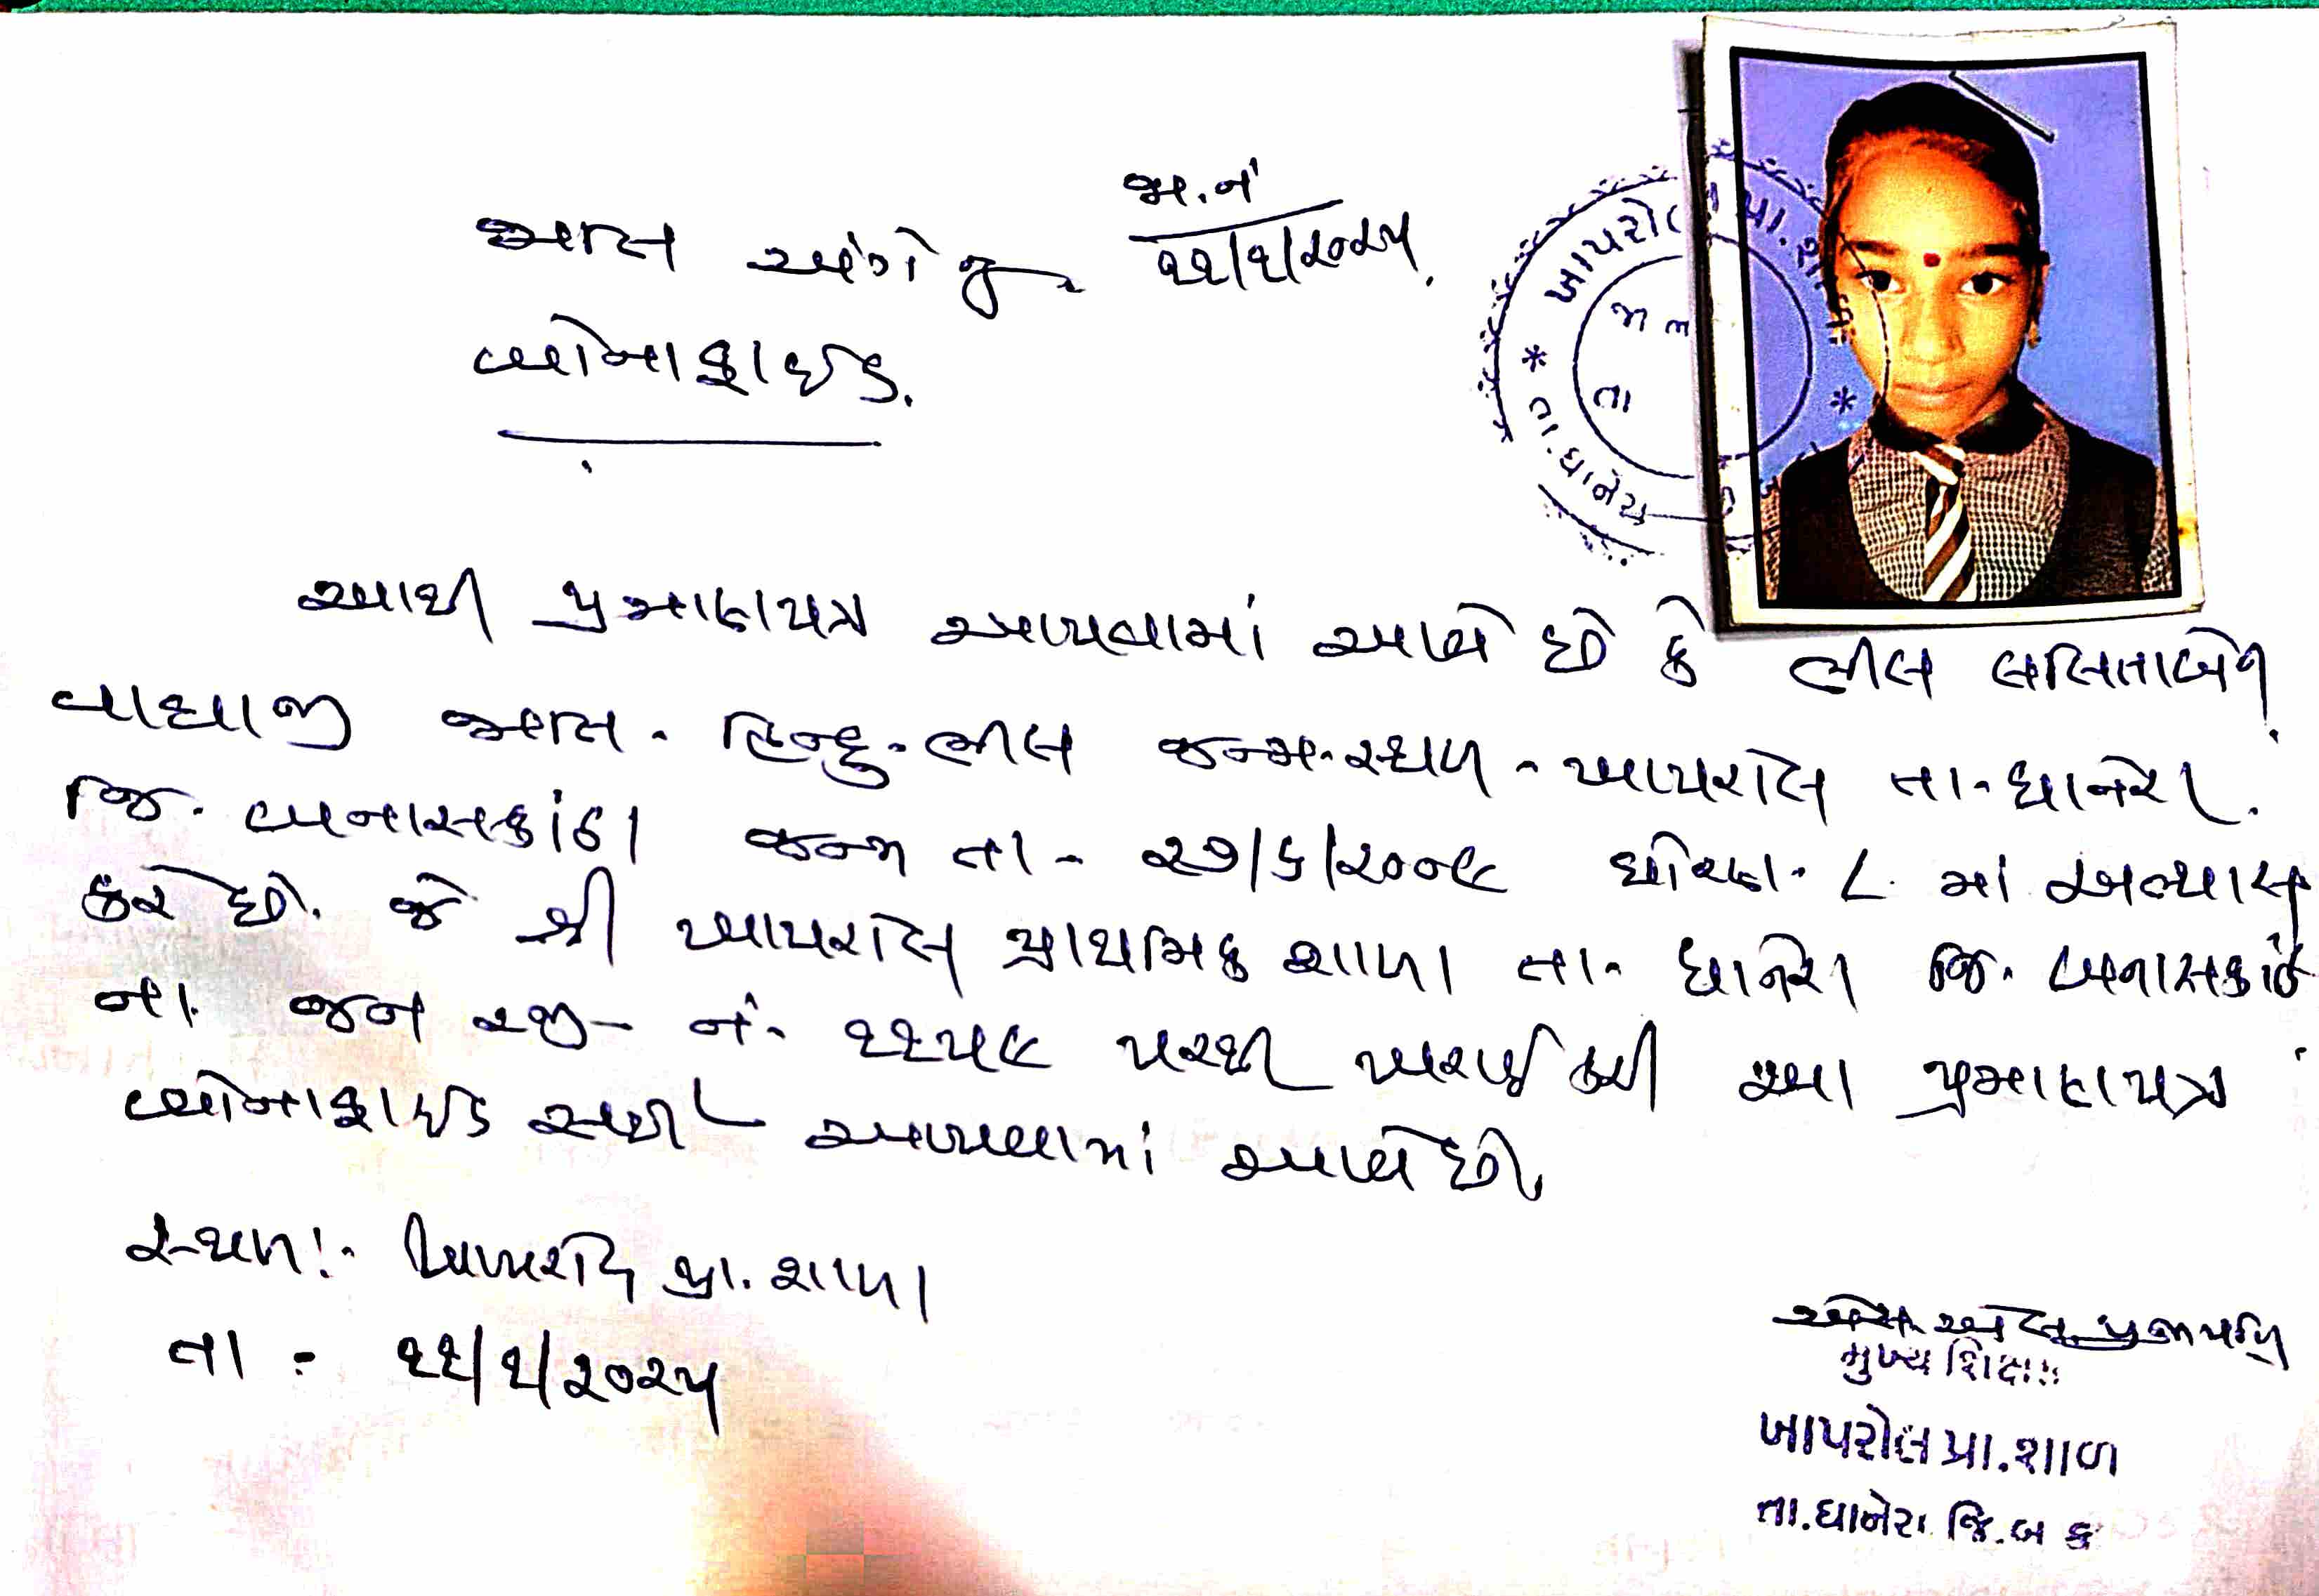 જા.નં
જાતિ અંગેનું ૧૧/૧/૨૦૨૫.
બોનાફાઈડ.
ખાપરોલ પ્રા. શાળા
જા નં
તા
* તા. ધાનેરા *
આથી પ્રમાણપત્ર આપવામાં આવે છે કે ભીલ લલિતાબેન
વાઘાજી જાતિ - હિન્દુ - ભીલ જન્મ - સ્થળ - ખાપરોલ તા - ધાનેરા.
જિ. બનાસકાંઠા જન્મ તા - ૨૭/૬/૨૦૦૯ ધોરણ - ૮ માં અભ્યાસ
કરે છે. જે શ્રી ખાપરોલ પ્રાથમિક શાળા તા - ધાનેરા જિ - બનાસકાંઠા
ના જન રજી - નં - ૧૧૫૯ પરથી ખરાઈ કરી આ પ્રમાણપત્ર
બોનાફાઈડ સર્ટી આપવામાં આવે છે.
સ્થળ :- ખાપરોલ પ્રા. શાળા
તા - ૧૧/૧/૨૦૨૫
પ્રજાપતિ
મુખ્ય શિક્ષક
ખાપરોલ પ્રા. શાળ
તા. ધાનેરા જિ. બ ક